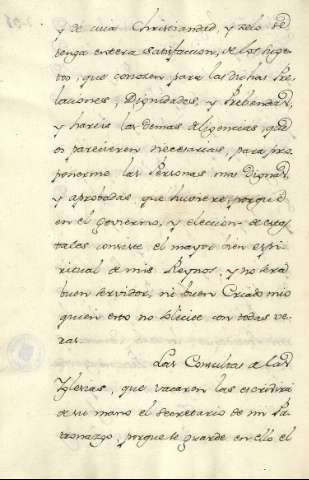 y de cuia Christiandad, y zelo se
tenga entera satisfacion, de los suge
tos, que conozcan para las dichas Pre
laciones, Dignidades, y Prebendas,
y hareis las demas diligencias, que
os parecieren necesarias, para pro
ponerme las Personas mas dignas,
y aprobadas, que huviere, porque
en el govierno, y eleccion de ecos
tales consiste el mayor bien espi
ritual de mis Reynos, y no será
buen servidor, ni buen Criado mio
quien esto no hiciese con todas ve
ras.
Las Consultas de las
Yglesias, que vacaren las escrivirá
de su mano el Secretario de mi Pa
tronazgo, porque se guarde en ello el